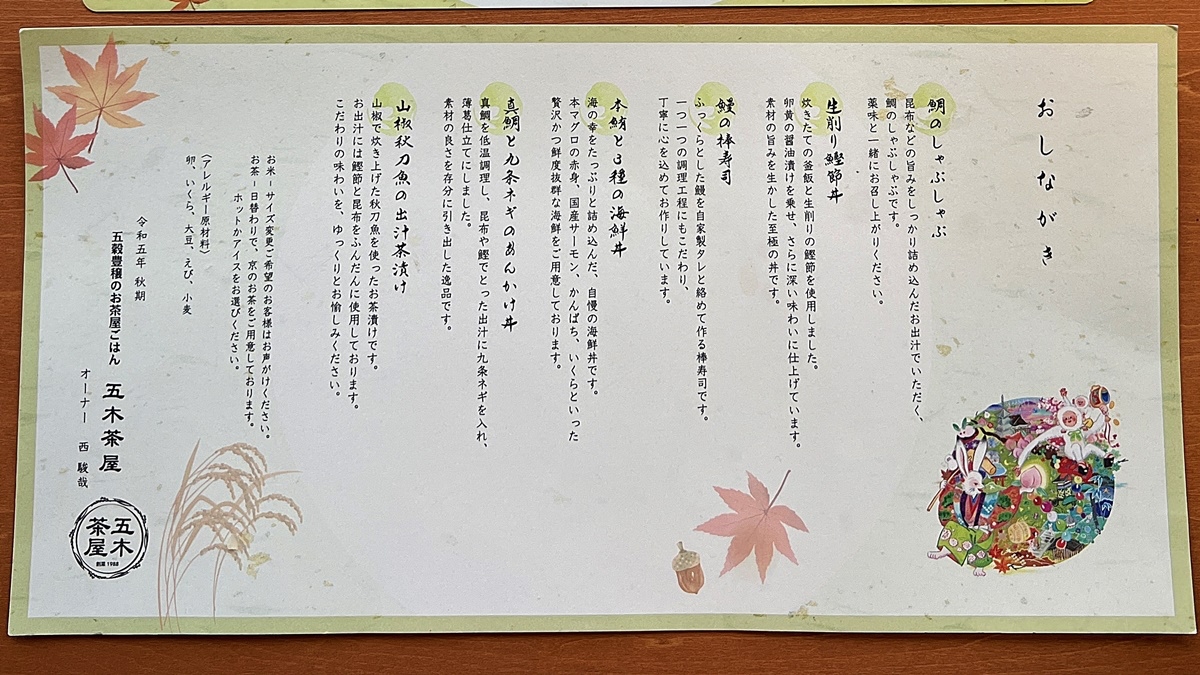 おしながき
鯛のしゃぶしゃぶ
昆布などの旨みをしっかり詰め込んだお出汁でいただく、
鯛のしゃぶしゃぶです。
薬味と一緒にお召し上がりください。
生削り鰹節丼
炊きたての釜飯と生削りの鰹節を使用しました。
卵黄の醤油漬けを乗せ、さらに深い味わいに仕上げています。
素材の旨みを生かした至極の丼です。
鰻の棒寿司
ふっくらとした鰻を自家製タレと絡めて作る棒寿司です。
一つ一つの調理工程にもこだわり、
丁寧に心を込めてお作りしています。
本鮪と3種の海鮮丼
海の幸をたっぷりと詰め込んだ、自慢の海鮮丼です。
本マグロの赤身、国産サーモン、かんぱち、いくらといった
贅沢かつ鮮度抜群な海鮮をご用意しております。
真鯛と九条ネギのあんかけ丼
真鯛を低温調理し、昆布や鰹でとった出汁に九条ネギを入れ、
薄葛仕立てにしました。
素材の良さを存分に引き出した逸品です。
山椒秋刀魚の出汁茶漬け
山椒で炊き上げた秋刀魚を使ったお茶漬けです。
お出汁には鰹節と昆布をふんだんに使用しております。
こだわりの味わいを、ゆっくりとお愉しみください。
お米-サイズ変更ご希望のお客様はお声がけください。
お茶-日替わりで、京のお茶をご用意しております。
ホットかアイスをお選びください。
(アレルギー原材料)
卵、いくら、大豆、えび、小麦
令和五年 秋期
五穀豊穣のお茶屋ごはん 五木茶屋
オーナー 西 駿哉
五木
茶屋
創業1988